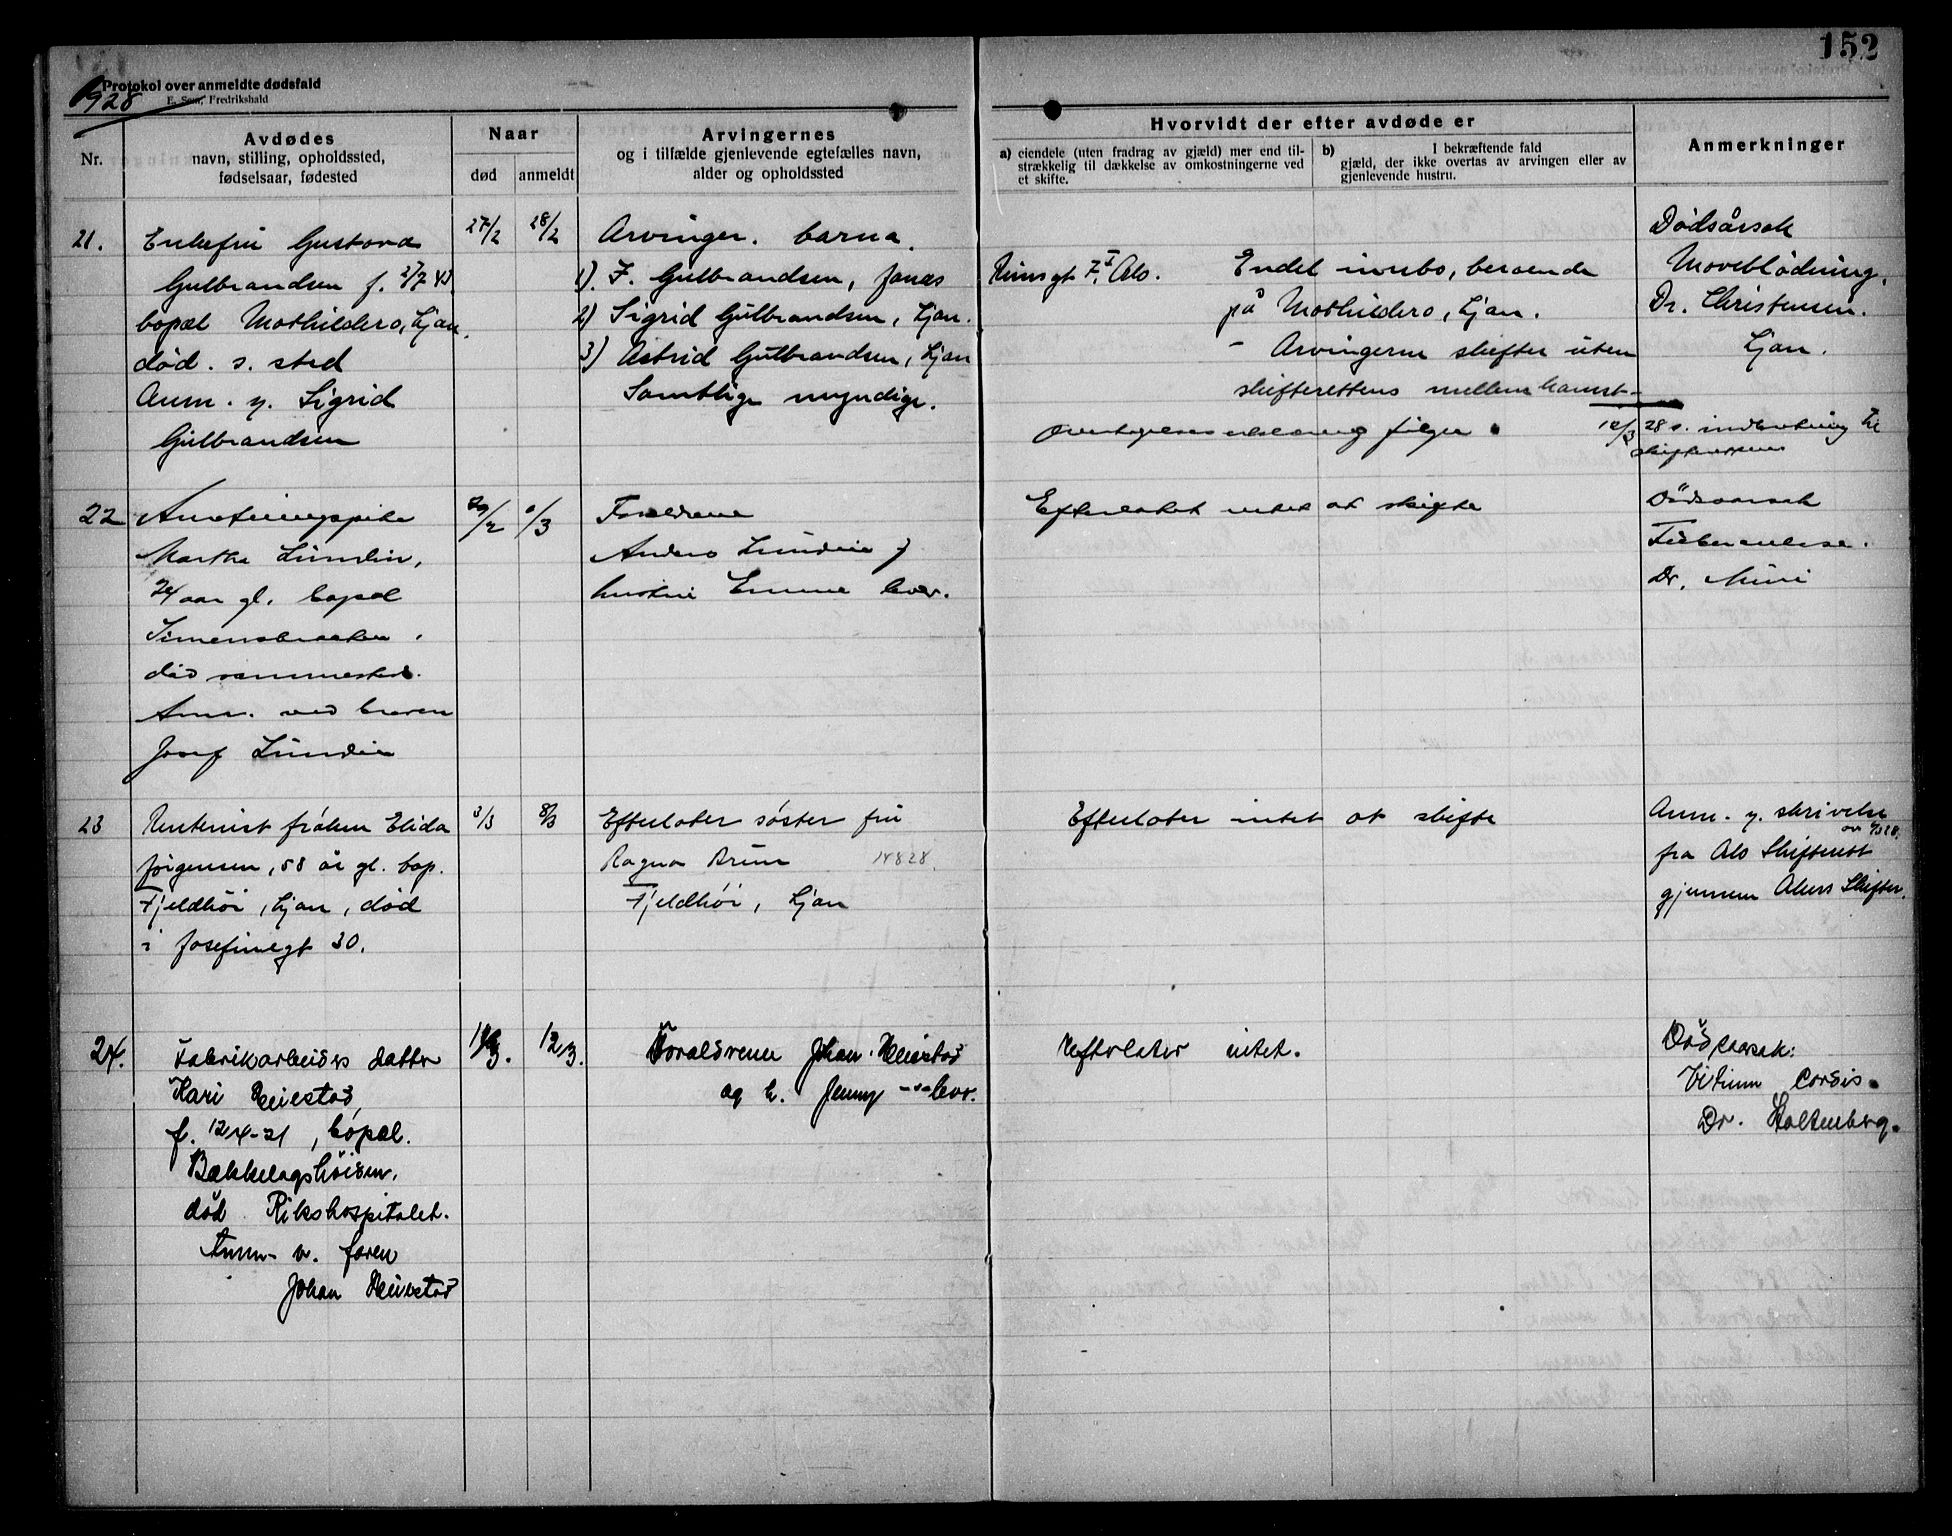 152
Protokol over anmeldte dødsfald
E. Sem, Fredrikshald
1928
Nr.
Avdødes
navn, stilling, opholdssted,
fødselsaar, fødested
Naar
død
anmeldt
Arvingernes
og i tilfælde gjenlevende egtefælles navn,
alder og opholdssted
Hvorvidt der efter avdøde er
a) eiendele (uten fradrag av gjæld) mer end til-
strækkelig til dækkelse av omkostningerne ved
et skifte.
b) I bekræftende fald
gjæld, der ikke overtas av arvingen eller av
gjenlevende hustru.
Anmerkninger
21.
Enkefru Gustava
Gulbrandsen f.
bopæl Mathildero, Ljan.
død. s. sted
Anm. v. Sigrid
Gulbrandsen
27/2
28/2
Arvinger. barna.
1). F. Gulbrandsen, Jonas
2) Sigrid Gulbrandsen, Ljan.
3) Astrid Gulbrandsen, Ljan
Samtlige myndige.
Reimsgt 7, Oslo.
Endel innbo, beroende
på Mathildero, Ljan.
- Arvingerne skifter uten
skifterettens mellemkomst.
følger
Dødsårsak
Dr. Christensen.
Ljan.
12/3 28 s. indberetning til
skifteretten
22
Martha Lundin,
24 aar gl. bopæl
Simensbraaten.
død sammested.
Anm. ved broren
Josef Lundin
29/2
/3
Forældrene
Anders Lundin &
hustru Emma lever.
Efterlatt intet at skifte
Dødsaarsak
Tuberculose.
Dr.
23
Rentenist frøken Elida
Jørgensen, 58 år gl. bop.
Fjeldhöi, Ljan, død
i Josefinegt 30.
3/3
8/3
Efterlater søster fru
Ragna Brun
14828
Fjeldhöi, Ljan
Efterlater intet at skifte
Anm. v. skrivelse
av 6/3 28.
fra Oslo Skifterett
gjennem Akers Skifter.
24.
Fabrikarbeiders datter
Kari Heiestad,
f. 12 4-21, bopæl.
Bækkelagshöiden.
død Rikshospitalet.
Anm. v. faren
Johan Heiestad
12/3.
Foraldrene Johan Heiestad
og h. Jenny -"- lever.
Efterlater intet.
Dødsaarsak:
Vitium Cordis.
Dr. Stoltenberg.